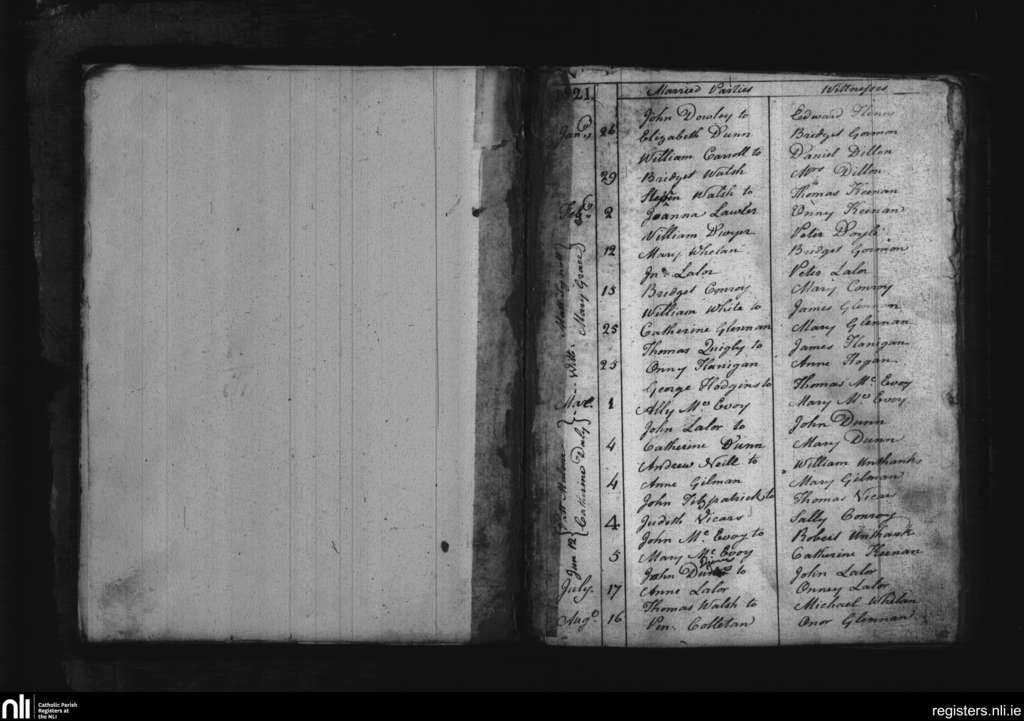 1821. Married Parties Wittnesses
John Dowley to Edward
Jany. 26 Elizabeth Dunn Bridget Gorman
William Carroll to Daniel Dillon
29 Bridget Walsh Mrs Dillon
Stephn Walsh to Thomas Keenan
Feby. 2 Joanna Lawler Onny Keenan
William Dwyer Peter Doyle
12 Mary Whelan Bridget Gorman
Jno. Lalor Peter Lalor
15 Bridget Conroy Mary Conroy
William White to James Glennan
25 Catherine Glennan Mary Glennan
Thomas Quigly to James Flanigan
25 Onny Flanigan Anne Hogan
George Hodgins to Thomas Mc Evoy
Mar. 1 Ally Mcs Evoy Mary Mcs Evoy
John Lalor to John Dunn
4 Catherine Dunn Mary Dunn
Andrew Neill to William Unthanks
4 Anne Gilman Mary Gilman
John Fitzpatrick to Thomas Vicars
4 Judith Vicars Sally Conroy
John Mc. Evoy to Robert Unthank
5 Mary Mc. Evoy Catherine Keenan
John to John Lalor
July. 17 Anne Lalor Onney Lalor
Thomas Walsh to Michael Whelan
Augt. 16 Colletan Onor Glennan
Jun 12 Malone
Catherine Daly
Witt.
Mary Grace
nli Catholic Parish
Registers at
the NLI
registers.nli.ie